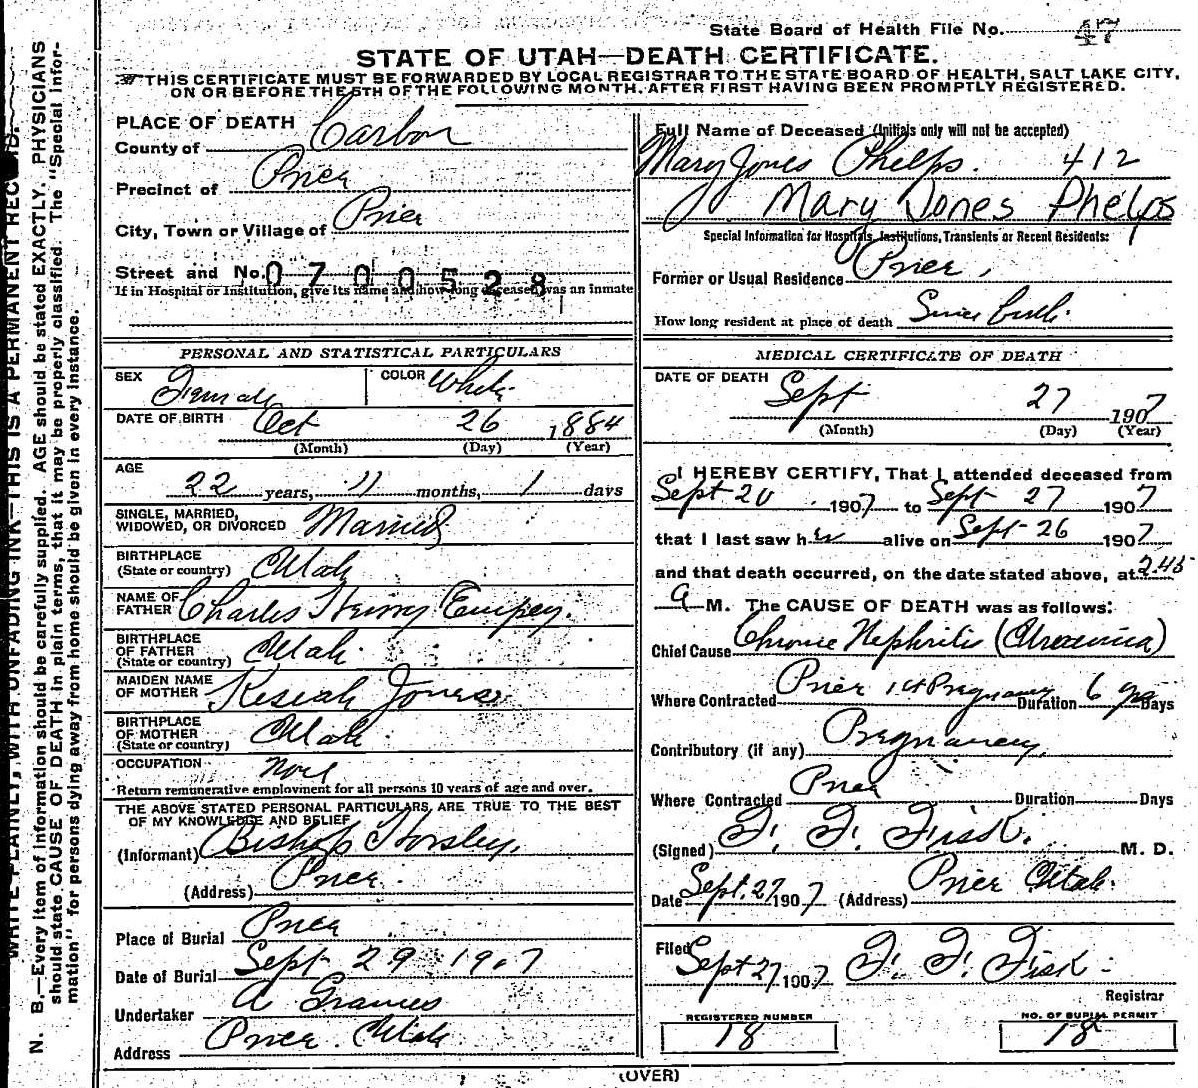 State Board of Health File No. 47
STATE OF UTAH—DEATH CERTIFICATE.
THIS CERTIFICATE MUST BE FORWARDED BY LOCAL REGISTRAR TO THE STATE BOARD OF HEALTH, SALT LAKE CITY,
ON OR BEFORE THE 5TH OF THE FOLLOWING MONTH, AFTER FIRST HAVING BEEN PROMPTLY REGISTERED.
WRITE PLAINLY, WITH UNFADING INK—THIS IS A PERMANENT RECORD.
N. B.—Every item of information should be carefully supplied. AGE should be stated EXACTLY. PHYSICIANS
should state CAUSE OF DEATH in plain terms, that it may be properly classified. The "Special Infor-
mation" for persons dying away from home should be given in every instance.
PLACE OF DEATH
County of Carbon
Precinct of Price
City, Town or Village of Price
Street and No. 0700528
If in Hospital or Institution, give its name and how long deceased was an inmate
PERSONAL AND STATISTICAL PARTICULARS
SEX Female COLOR White
DATE OF BIRTH Oct 26 1884
(Month) (Day) (Year)
AGE
22 years, 11 months, 1 days
SINGLE, MARRIED,
WIDOWED, OR DIVORCED Married
BIRTHPLACE
(State or country) Utah
NAME OF
FATHER Charles Henry Empey.
BIRTHPLACE
OF FATHER
(State or country) Utah.
MAIDEN NAME
OF MOTHER Kesiah Jones
BIRTHPLACE
OF MOTHER
(State or country) Utah.
OCCUPATION None
Return remunerative employment for all persons 10 years of age and over.
THE ABOVE STATED PERSONAL PARTICULARS, ARE TRUE TO THE BEST
OF MY KNOWLEDGE AND BELIEF
(Informant) Bishop Horsley.
(Address) Price.
Place of Burial Price
Date of Burial Sept 29 1907
Undertaker A Grames
Address Price Utah
Full Name of Deceased (Initials only will not be accepted)
Mary Jones Phelps. 412
Mary Jones Phelps
Special Information for Hospitals, Institutions, Transients or Recent Residents:
Former or Usual Residence Price,
How long resident at place of death Since birth.
MEDICAL CERTIFICATE OF DEATH
DATE OF DEATH Sept 27 1907
(Month) (Day) (Year)
I HEREBY CERTIFY, That I attended deceased from
Sept 20 1907 to Sept 27 1907
that I last saw her alive on Sept 26 1907
and that death occurred, on the date stated above, at 2.45
a M. The CAUSE OF DEATH was as follows:
Chief Cause Chronic Nephritis (Uraemia)
Where Contracted Price 1st Pregnancy Duration 6 yrs Days
Contributory (if any) Pregnancy.
Where Contracted Price Duration Days
(Signed) F. F. Fisk. M. D.
Date Sept. 27 1907 (Address) Price Utah.
Filed Sept 27 1907 F. F. Fisk.
Registrar
REGISTERED NUMBER
18
NO. OF BURIAL PERMIT
18
(OVER)